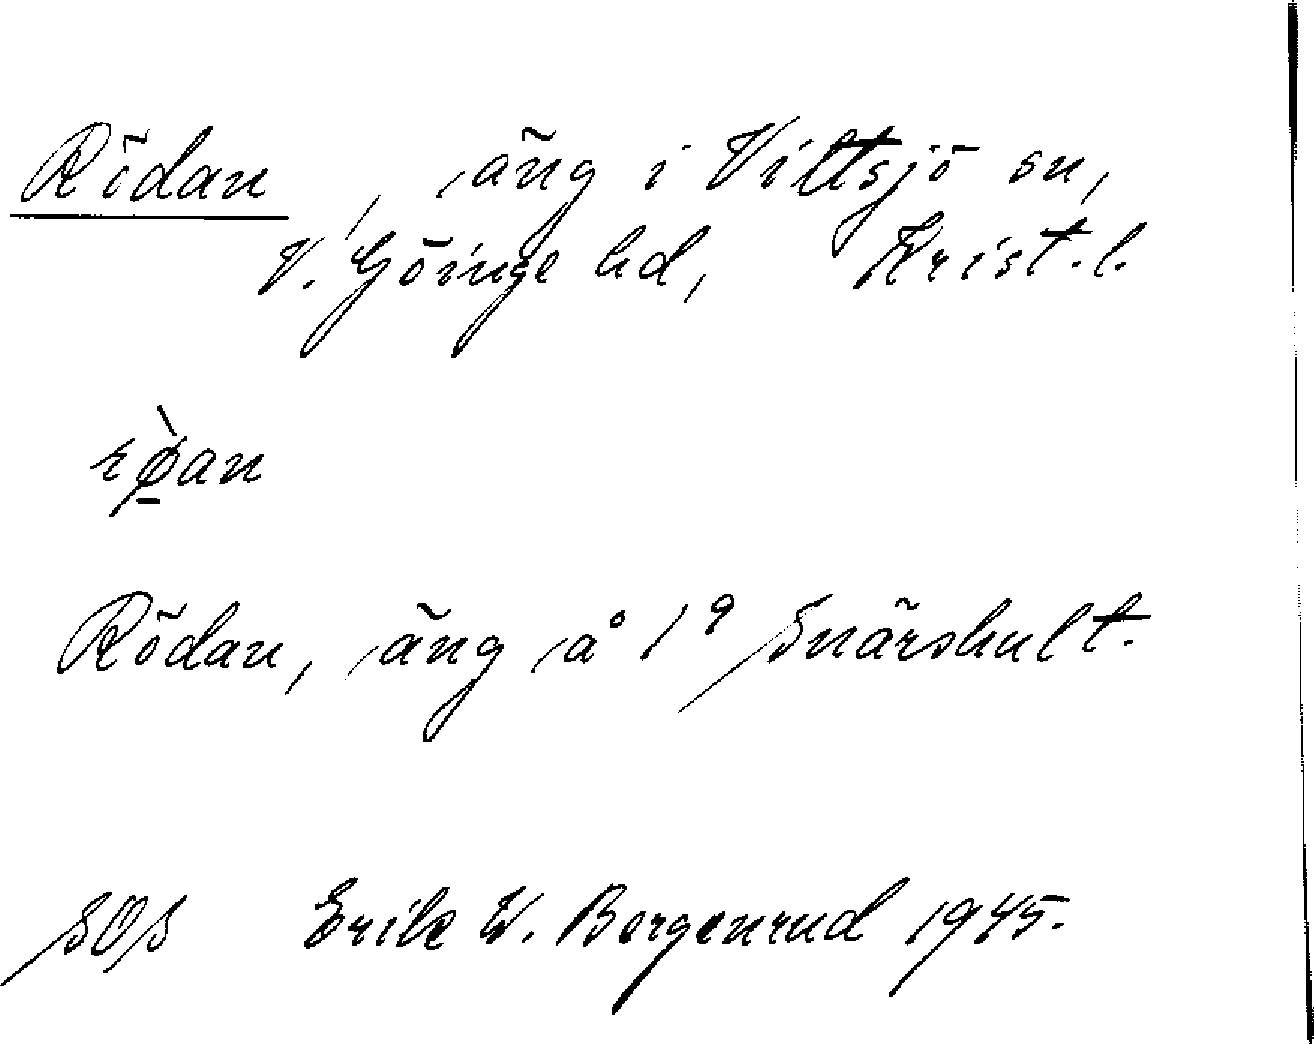 Rödan, äng i Vittsjö sn,
V. Göinge hd, Krist. l.
rø̀an
Rödan, äng å 1⁹ Snärshult.
SOS Erik W. Bergenrud 1945.